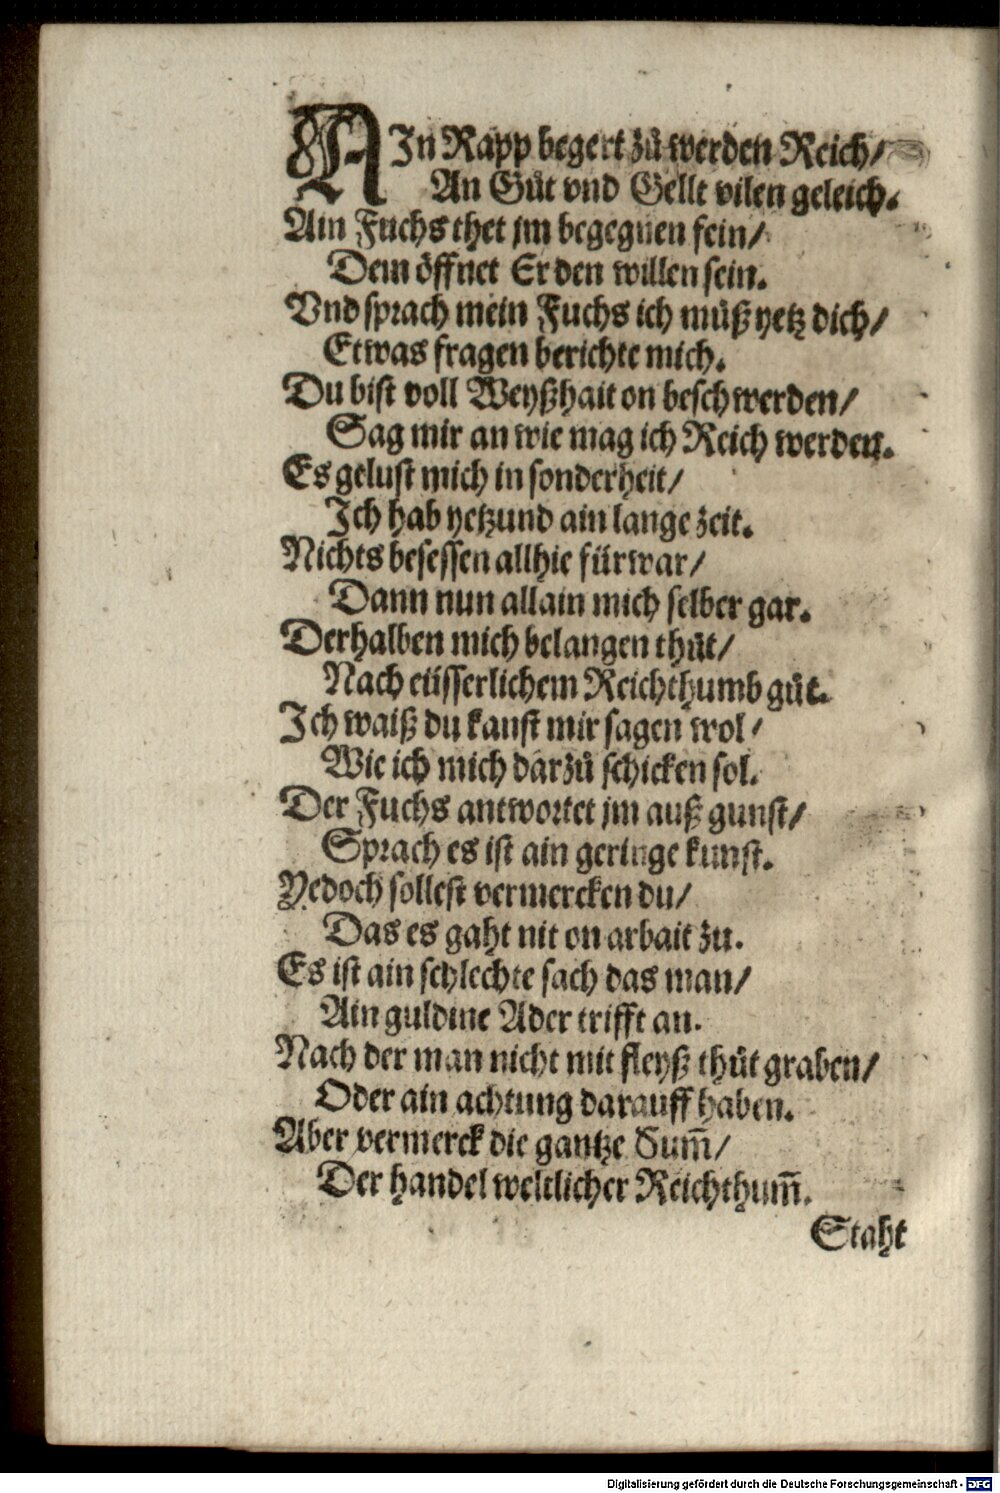 AJn Rapp begert zů werden Reich/
An Gůt vnd Gellt vilen geleich.
Ain Fuchs thet jm begegnen fein/
Dem öffnet Er den willen sein.
Vnd sprach mein Fuchs ich můß yetz dich/
Etwas fragen berichte mich.
Du bist voll Weyßhait on beschwerden/
Sag mir an wie mag ich Reich werden.
Es gelust mich in sonderheit/
Jch hab yetzund ain lange zeit.
Nichts besessen allhie fürwar/
Dann nun allain mich selber gar.
Derhalben mich belangen thůt/
Nach eüsserlichem Reichthumb gůt.
Jch waiß du kanst mir sagen wol/
Wie ich mich darzů schicken sol.
Der Fuchs antwortet jm auß gunst/
Sprach es ist ain geringe kunst.
Yedoch sollest vermercken du/
Das es gaht nit on arbait zu.
Es ist ain schlechte sach das man/
Ain guldine Ader trifft an.
Nach der man nicht mit fleyß thůt graben/
Oder ain achtung darauff haben.
Aber vermerck die gantze Sum̃/
Der handel weltlicher Reichthum̃.
Staht
Digitalisierung gefördert durch die Deutsche Forschungsgemeinschaft - DFG